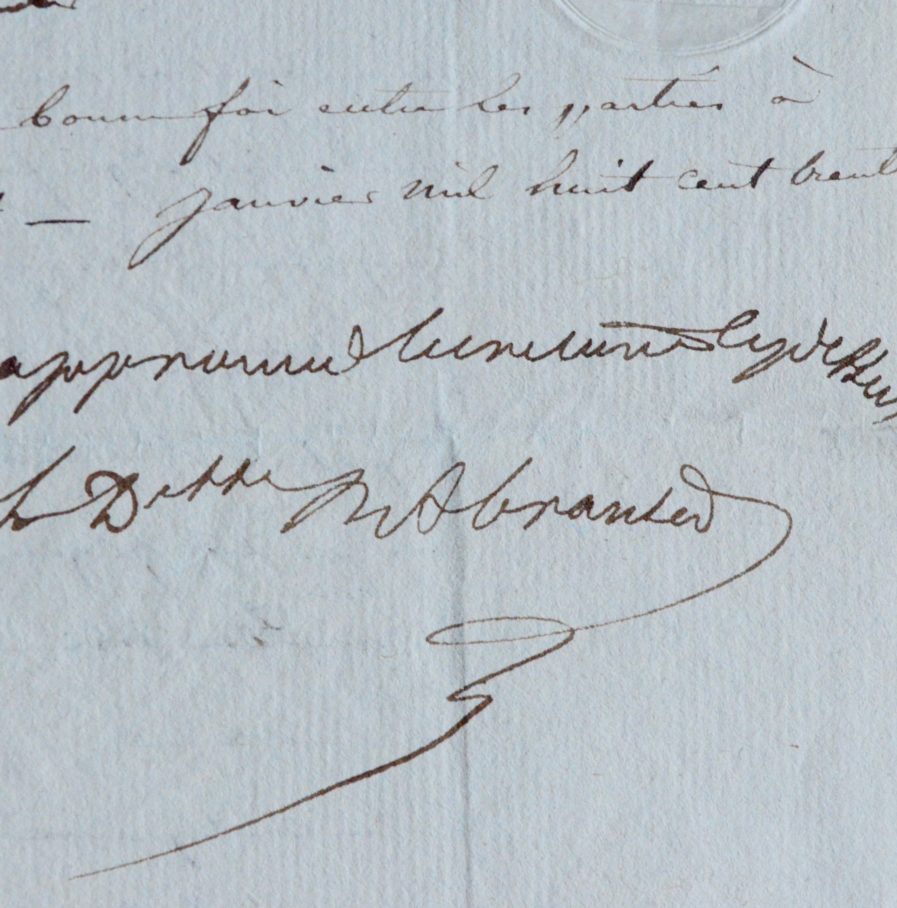 bonne foi entre les parties à
— janvier mil huit cent trent
approuvé l'écriture cy de
la Dsse D'Abrantes